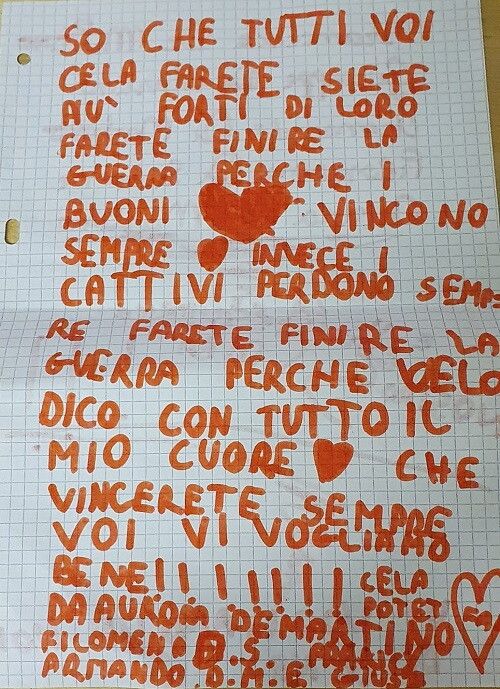 SO CHE TUTTI VOI
CELA FARETE SIETE
PIU' FORTI DI LORO
FARETE FINIRE LA
GUERRA PERCHE I
BUONI VINCONO
SEMPRE INVECE I
CATTIVI PERDONO SEMP-
RE FARETE FINIRE LA
GUERRA PERCHE VELO
DICO CON TUTTO IL
MIO CUORE CHE
VINCERETE SEMPRE
VOI VI VOGLIAMO
BENE!!!!!!! CELA
POTET
DA AURORA DE MARTINO
FILOMENA D.S
ARMANDO.D.M.E GIUS